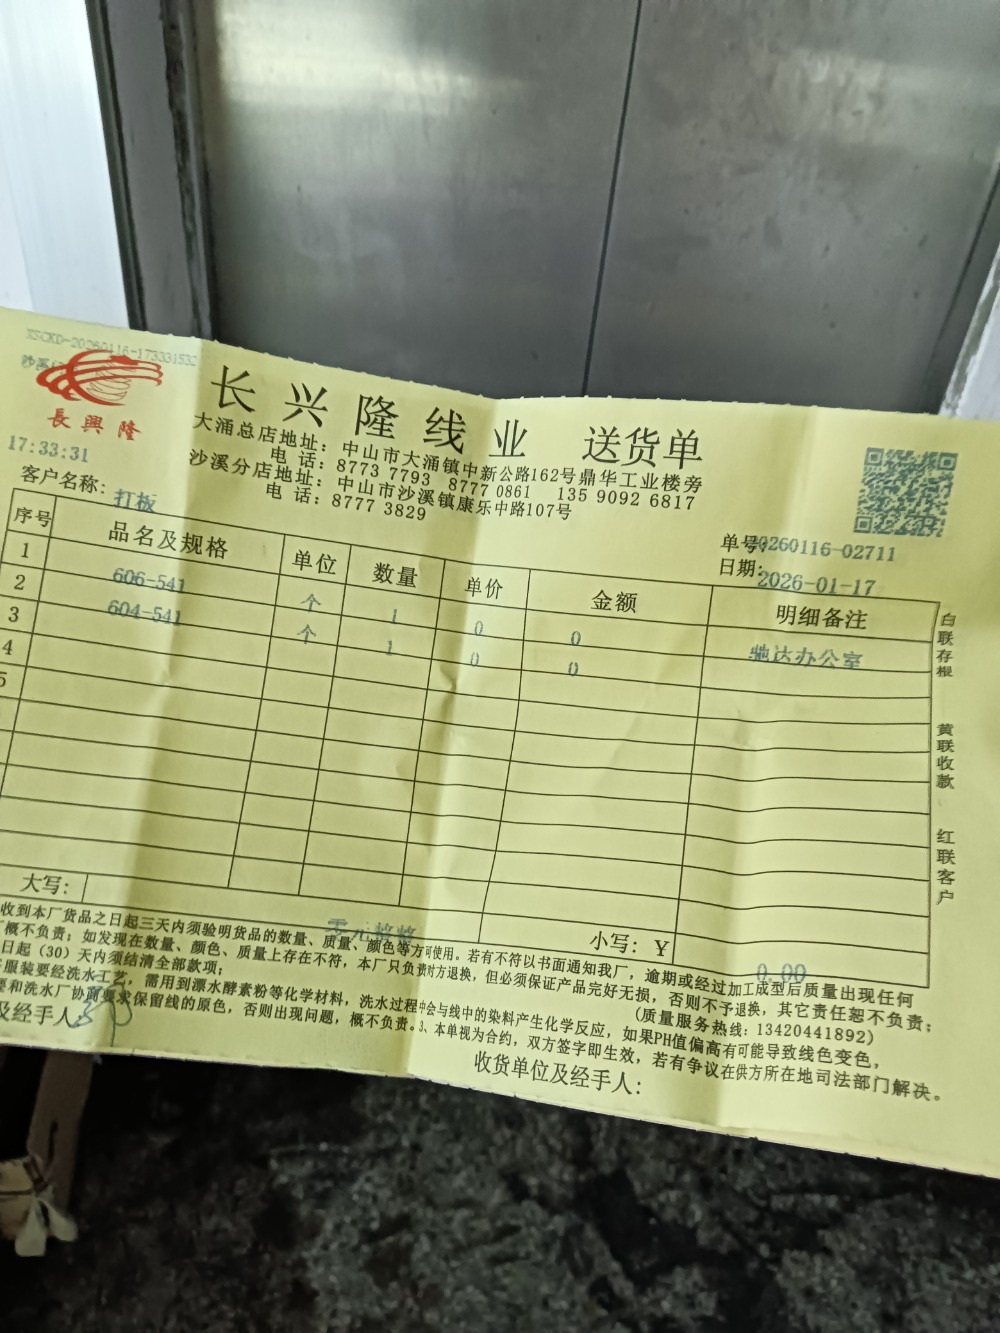 XSCKD-20260116-173331532
沙溪
長興隆
17:33:31
长兴隆线业 送货单
大涌总店地址：中山市大涌镇中新公路162号鼎华工业楼旁
电 话：8773 7793 8777 0861 135 9092 6817
沙溪分店地址：中山市沙溪镇康乐中路107号
电 话：8777 3829
客户名称：打板
单号：20260116-02711
日期：2026-01-17
序号 品名及规格 单位 数量 单价 金额 明细备注
1 606-541 个 1 0 0 驰达办公室
2 604-541 个 1 0 0
3
4
5
大写：零元整整
小写：￥ 0.00
白联存根 黄联收款 红联客户
收到本厂货品之日起三天内须验明货品的数量、质量、颜色等方可使用。若有不符以书面通知我厂，逾期或经过加工成型后质量出现任何
概不负责；如发现在数量、颜色、质量上存在不符，本厂只负责对方退换，但必须保证产品完好无损，否则不予退换，其它责任恕不负责；
日起（30）天内须结清全部款项；
（质量服务热线：13420441892）
服装要经洗水工艺，需用到漂水酵素粉等化学材料，洗水过程中会与线中的染料产生化学反应，如果PH值偏高有可能导致线色变色，
和洗水厂协商要求保留线的原色，否则出现问题，概不负责。3、本单视为合约，双方签字即生效，若有争议在供方所在地司法部门解决。
及经手人
收货单位及经手人：